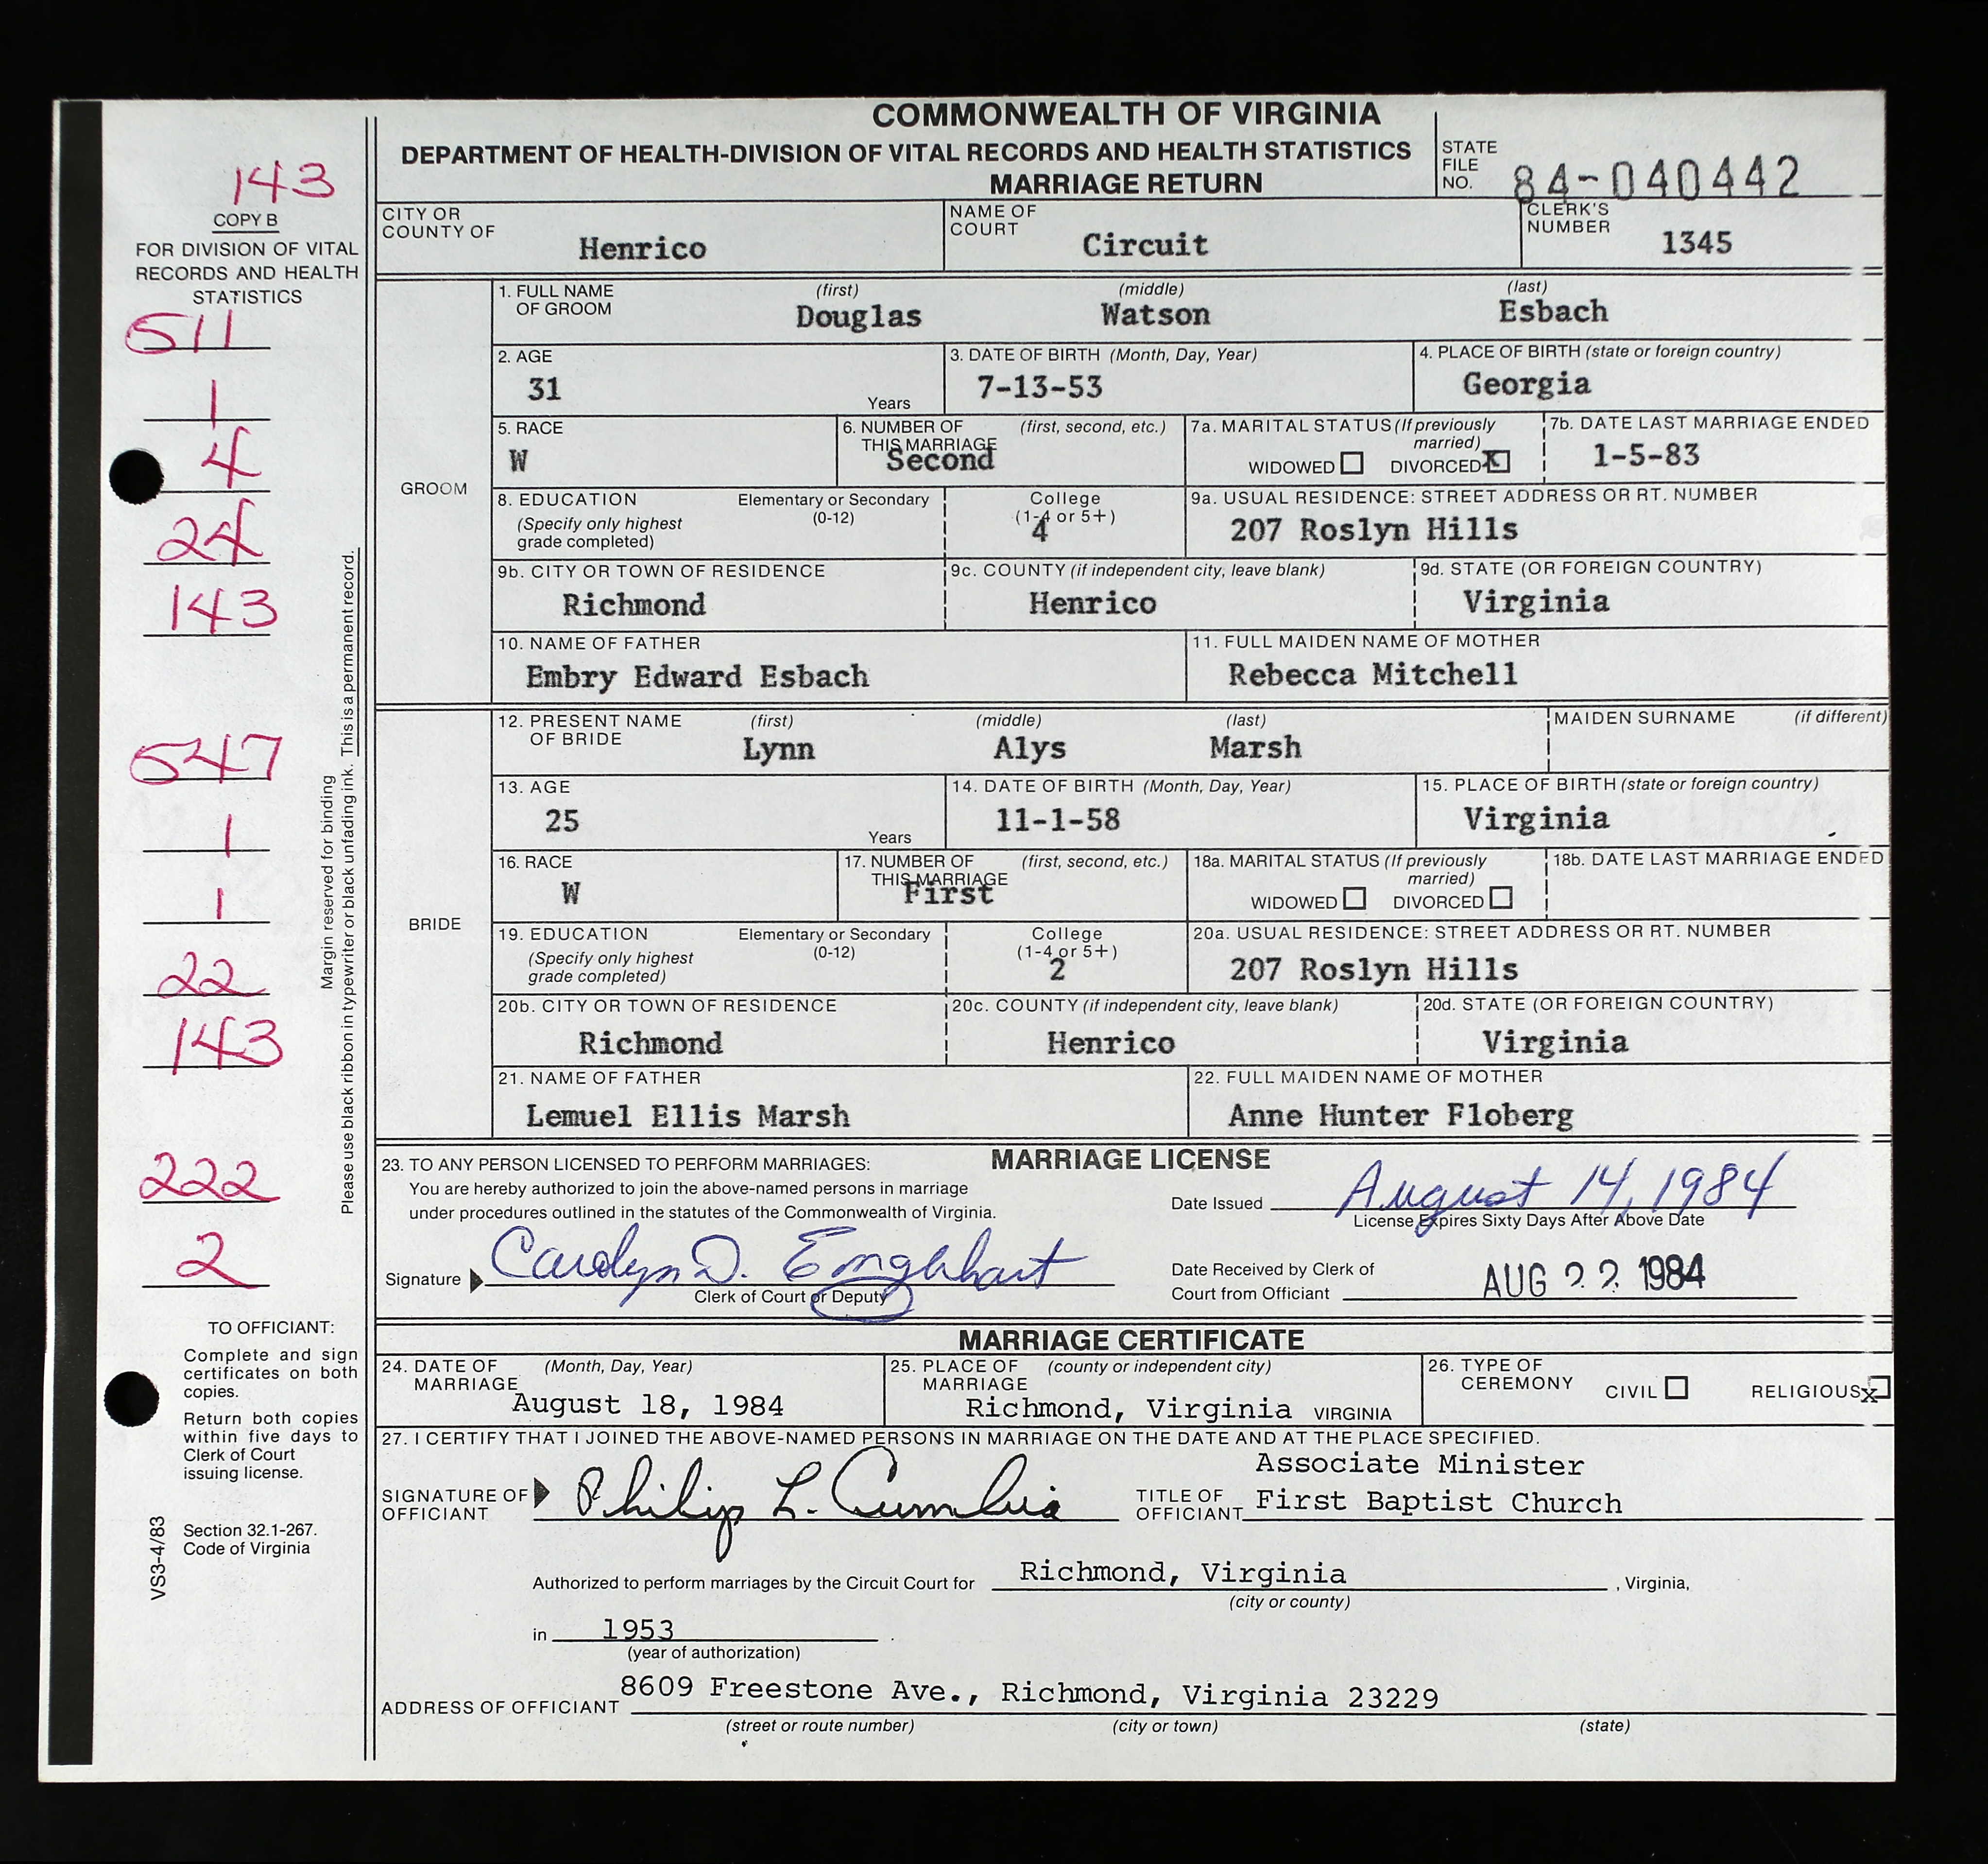 COMMONWEALTH OF VIRGINIA
DEPARTMENT OF HEALTH-DIVISION OF VITAL RECORDS AND HEALTH STATISTICS
MARRIAGE RETURN
STATE FILE NO. 84-040442
143
COPY B
FOR DIVISION OF VITAL
RECORDS AND HEALTH
STATISTICS
511
1
4
24
143
547
1
1
22
143
222
2
Margin reserved for binding
Please use black ribbon in typewriter or black unfading ink. This is a permanent record.
TO OFFICIANT:
Complete and sign
certificates on both
copies.
Return both copies
within five days to
Clerk of Court
issuing license.
Section 32.1-267.
Code of Virginia
VS3-4/83
CITY OR COUNTY OF Henrico
NAME OF COURT Circuit
CLERK'S NUMBER 1345
GROOM
1. FULL NAME OF GROOM (first) Douglas (middle) Watson (last) Esbach
2. AGE 31 Years
3. DATE OF BIRTH (Month, Day, Year) 7-13-53
4. PLACE OF BIRTH (state or foreign country) Georgia
5. RACE W
6. NUMBER OF THIS MARRIAGE (first, second, etc.) Second
7a. MARITAL STATUS (If previously married) WIDOWED DIVORCED X
7b. DATE LAST MARRIAGE ENDED 1-5-83
8. EDUCATION (Specify only highest grade completed) Elementary or Secondary (0-12) College (1-4 or 5+) 4
9a. USUAL RESIDENCE: STREET ADDRESS OR RT. NUMBER 207 Roslyn Hills
9b. CITY OR TOWN OF RESIDENCE Richmond
9c. COUNTY (if independent city, leave blank) Henrico
9d. STATE (OR FOREIGN COUNTRY) Virginia
10. NAME OF FATHER Embry Edward Esbach
11. FULL MAIDEN NAME OF MOTHER Rebecca Mitchell
BRIDE
12. PRESENT NAME OF BRIDE (first) Lynn (middle) Alys (last) Marsh
MAIDEN SURNAME (if different)
13. AGE 25 Years
14. DATE OF BIRTH (Month, Day, Year) 11-1-58
15. PLACE OF BIRTH (state or foreign country) Virginia
16. RACE W
17. NUMBER OF THIS MARRIAGE (first, second, etc.) First
18a. MARITAL STATUS (If previously married) WIDOWED DIVORCED
18b. DATE LAST MARRIAGE ENDED
19. EDUCATION (Specify only highest grade completed) Elementary or Secondary (0-12) College (1-4 or 5+) 2
20a. USUAL RESIDENCE: STREET ADDRESS OR RT. NUMBER 207 Roslyn Hills
20b. CITY OR TOWN OF RESIDENCE Richmond
20c. COUNTY (if independent city, leave blank) Henrico
20d. STATE (OR FOREIGN COUNTRY) Virginia
21. NAME OF FATHER Lemuel Ellis Marsh
22. FULL MAIDEN NAME OF MOTHER Anne Hunter Floberg
MARRIAGE LICENSE
23. TO ANY PERSON LICENSED TO PERFORM MARRIAGES:
You are hereby authorized to join the above-named persons in marriage
under procedures outlined in the statutes of the Commonwealth of Virginia.
Date Issued August 14, 1984
License Expires Sixty Days After Above Date
Signature Carolyn D. Englehart
Clerk of Court or Deputy
Date Received by Clerk of
Court from Officiant AUG 22 1984
MARRIAGE CERTIFICATE
24. DATE OF MARRIAGE (Month, Day, Year) August 18, 1984
25. PLACE OF MARRIAGE (county or independent city) Richmond, Virginia VIRGINIA
26. TYPE OF CEREMONY CIVIL RELIGIOUS x
27. I CERTIFY THAT I JOINED THE ABOVE-NAMED PERSONS IN MARRIAGE ON THE DATE AND AT THE PLACE SPECIFIED.
SIGNATURE OF OFFICIANT Philip L. Cumbia
TITLE OF OFFICIANT Associate Minister
First Baptist Church
Authorized to perform marriages by the Circuit Court for Richmond, Virginia , Virginia,
(city or county)
in 1953 .
(year of authorization)
ADDRESS OF OFFICIANT 8609 Freestone Ave., Richmond, Virginia 23229
(street or route number) (city or town) (state)